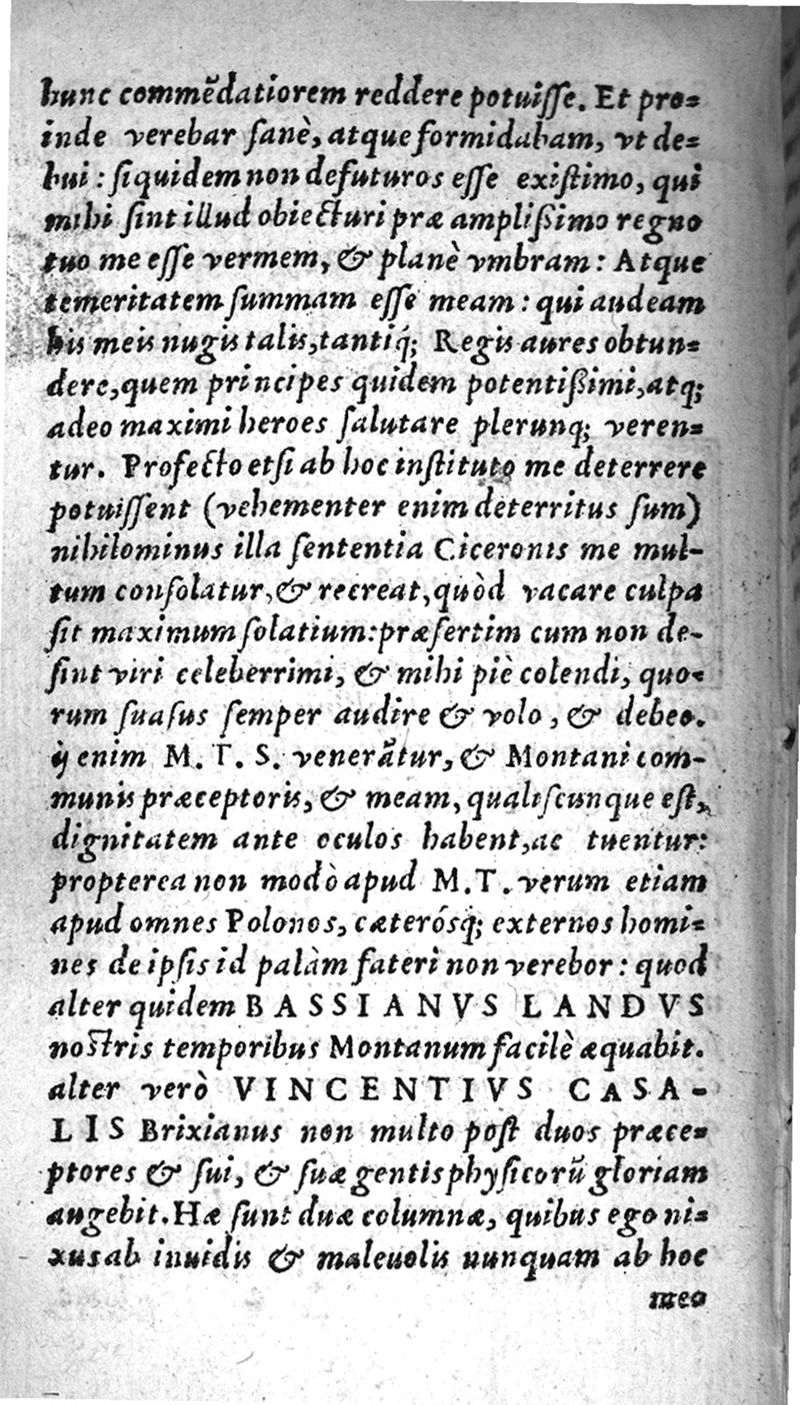 hunc commẽdatiorem reddere potuiſſe. Et pro=
inde verebar ſanè, atque formidabam, vt de=
bui : ſiquidem non defuturos eſſe exiſtimo, qui
mihi ſint illud obiecturi præ ampliſſimo regno
tuo me eſſe vermem, & planè vmbram : Atque
temeritatem ſummam eſſe meam : qui audeam
his meis nugis talis, tantiq́; Regis aures obtun=
dere, quem principes quidem potentiſſimi, atq;
adeo maximi heroes ſalutare plerunq; veren=
tur. Profecto etſi ab hoc inſtituto me deterrere
potuiſſent (vehementer enim deterritus ſum)
nihilominus illa ſententia Ciceronis me mul-
tum conſolatur, & recreat, quòd vacare culpa
ſit maximum ſolatium: præſertim cum non de-
ſint viri celeberrimi, & mihi piè colendi, quo=
rum ſuaſus ſemper audire & volo, & debeo.
ij enim M. T. S. venerãtur, & Montani com-
munis præceptoris, & meam, qualiſcunque eſt,
dignitatem ante oculos habent, ac tuentur:
propterea non modò apud M.T. verum etiam
apud omnes Polonos, cæterósq; externos homi=
nes de ipſis id palàm fateri non verebor : quod
alter quidem BASSIANVS LANDVS
noſtris temporibus Montanum facilè æquabit.
alter verò VINCENTIVS CASA-
LIS Brixianus non multo poſt duos præce=
ptores & ſui, & ſuæ gentis phyſicorũ gloriam
augebit. Hæ ſunt duæ columnæ, quibus ego ni=
xus ab inuidis & maleuolis nunquam ab hoc
meo